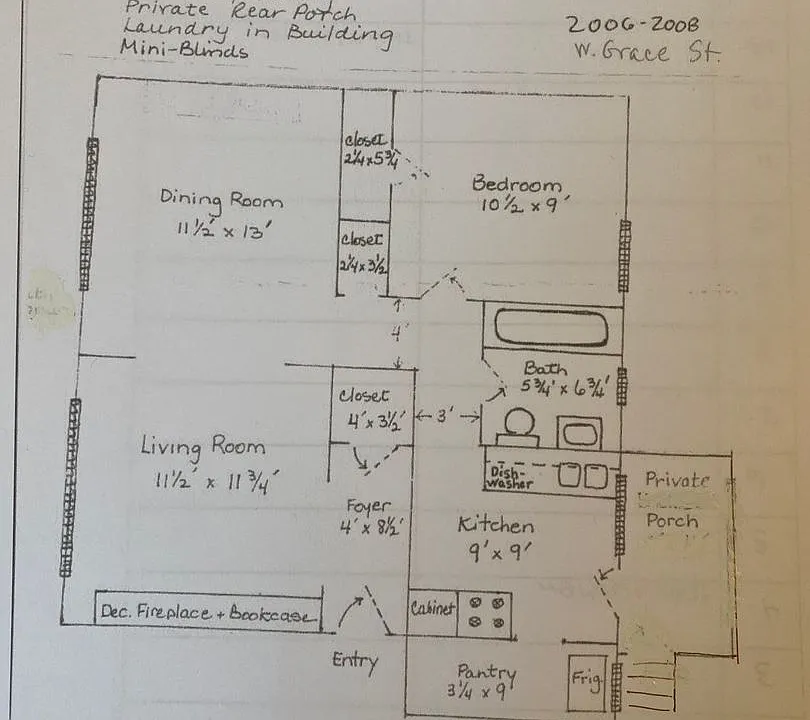 Private Rear Porch
Laundry in Building
Mini-Blinds
2006-2008
W. Grace St.
closet
2¼ x 5¾
Dining Room
11½' x 13'
Bedroom
10½ x 9'
closet
2¼ x 3½
4'
Bath
5¾' x 6¾'
closet
4' x 3½'
3'
Living Room
11½' x 11¾'
Dish-
washer
Private
Porch
Foyer
4' x 8½'
Kitchen
9' x 9'
Dec. Fireplace + Bookcase
Cabinet
Entry
Pantry
3¼ x 9'
Frig